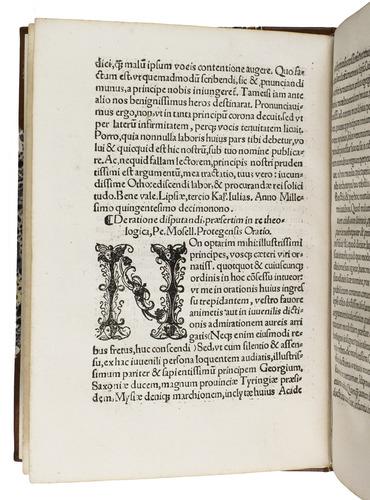 dici, q̃ malũ ipsum vocis contentione augere. Quo fa-
ctum est vt quemadmodũ scribendi, sic & ꝓnunciandi
munus, a principe nobis iniungeret. Tamesi iam ante
alio nos benignissimus heros destinarat. Pronunciaui-
mus ergo, non vt in tanta principũ corona decuit, sed vt
per laterũ infirmitatem, perq̃ vocis tenuitatem licuit.
Porro, quia nonnulla laboris huius pars tibi debetur, vo-
lui & quicquid est hic nostrũ, sub tuo nomine publica-
re. Ac, ne quid fallam lectorem, principis nostri pruden-
tissimi est argumentũ, mea tractatio, tuus vero: iucun-
dissime Otho: ediscendi labor, & procurandæ rei solici
tudo. Bene vale. Lipsiæ, tercio Kal. Iulias. Anno Mille-
simo quingentesimo decimonono.
¶ De ratione disputandi, præsertim in re theo-
logica, Pe. Mosell. Protegensis Oratio.
NON optarim mihi: illustrissimi
principes, vosq̃ cæteri viri or-
natiss. quotquot & cuiuscunq̃
ordinis in hoc cõsessu inuocor:
vt me in orationis huius ingres
su trepidantem, vestro fauore
animetis aut in iuuenilis dicti-
onis admirationem aureis arri
gatis (Neq̃ enim eiusmodi re-
bus fretus, huc conscendi) Sed, vt cum silentio & assen-
su, ex hac iuuenili persona loquentem audiatis, illustris-
simum pariter & sapientissimũ principem Georgium,
Saxoniæ ducem, magnum prouinciæ Tyringiæ præsi-
dem, Mysiæ deniq̃ marchionem, inclytæ huius Acade